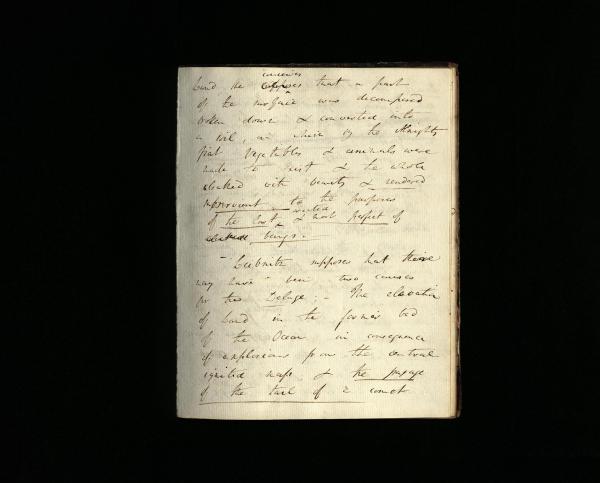 conceives
land he supposes that a part
of the surface was decomposed
broken down & converted into
a soil, on which by the Almighty
first Vegetables & animals were
made to exist & the whole
clothed with beauty & rendered
subservient to the purposes
of the last created & most perfect of
beings. -
- Leibnitz supposes that there
may have been two causes
for this Deluge; - The elevation
of land in the former bed
of the Ocean in consequence
of explosions from the central
ignited mass & the passage
of the tail of a comet